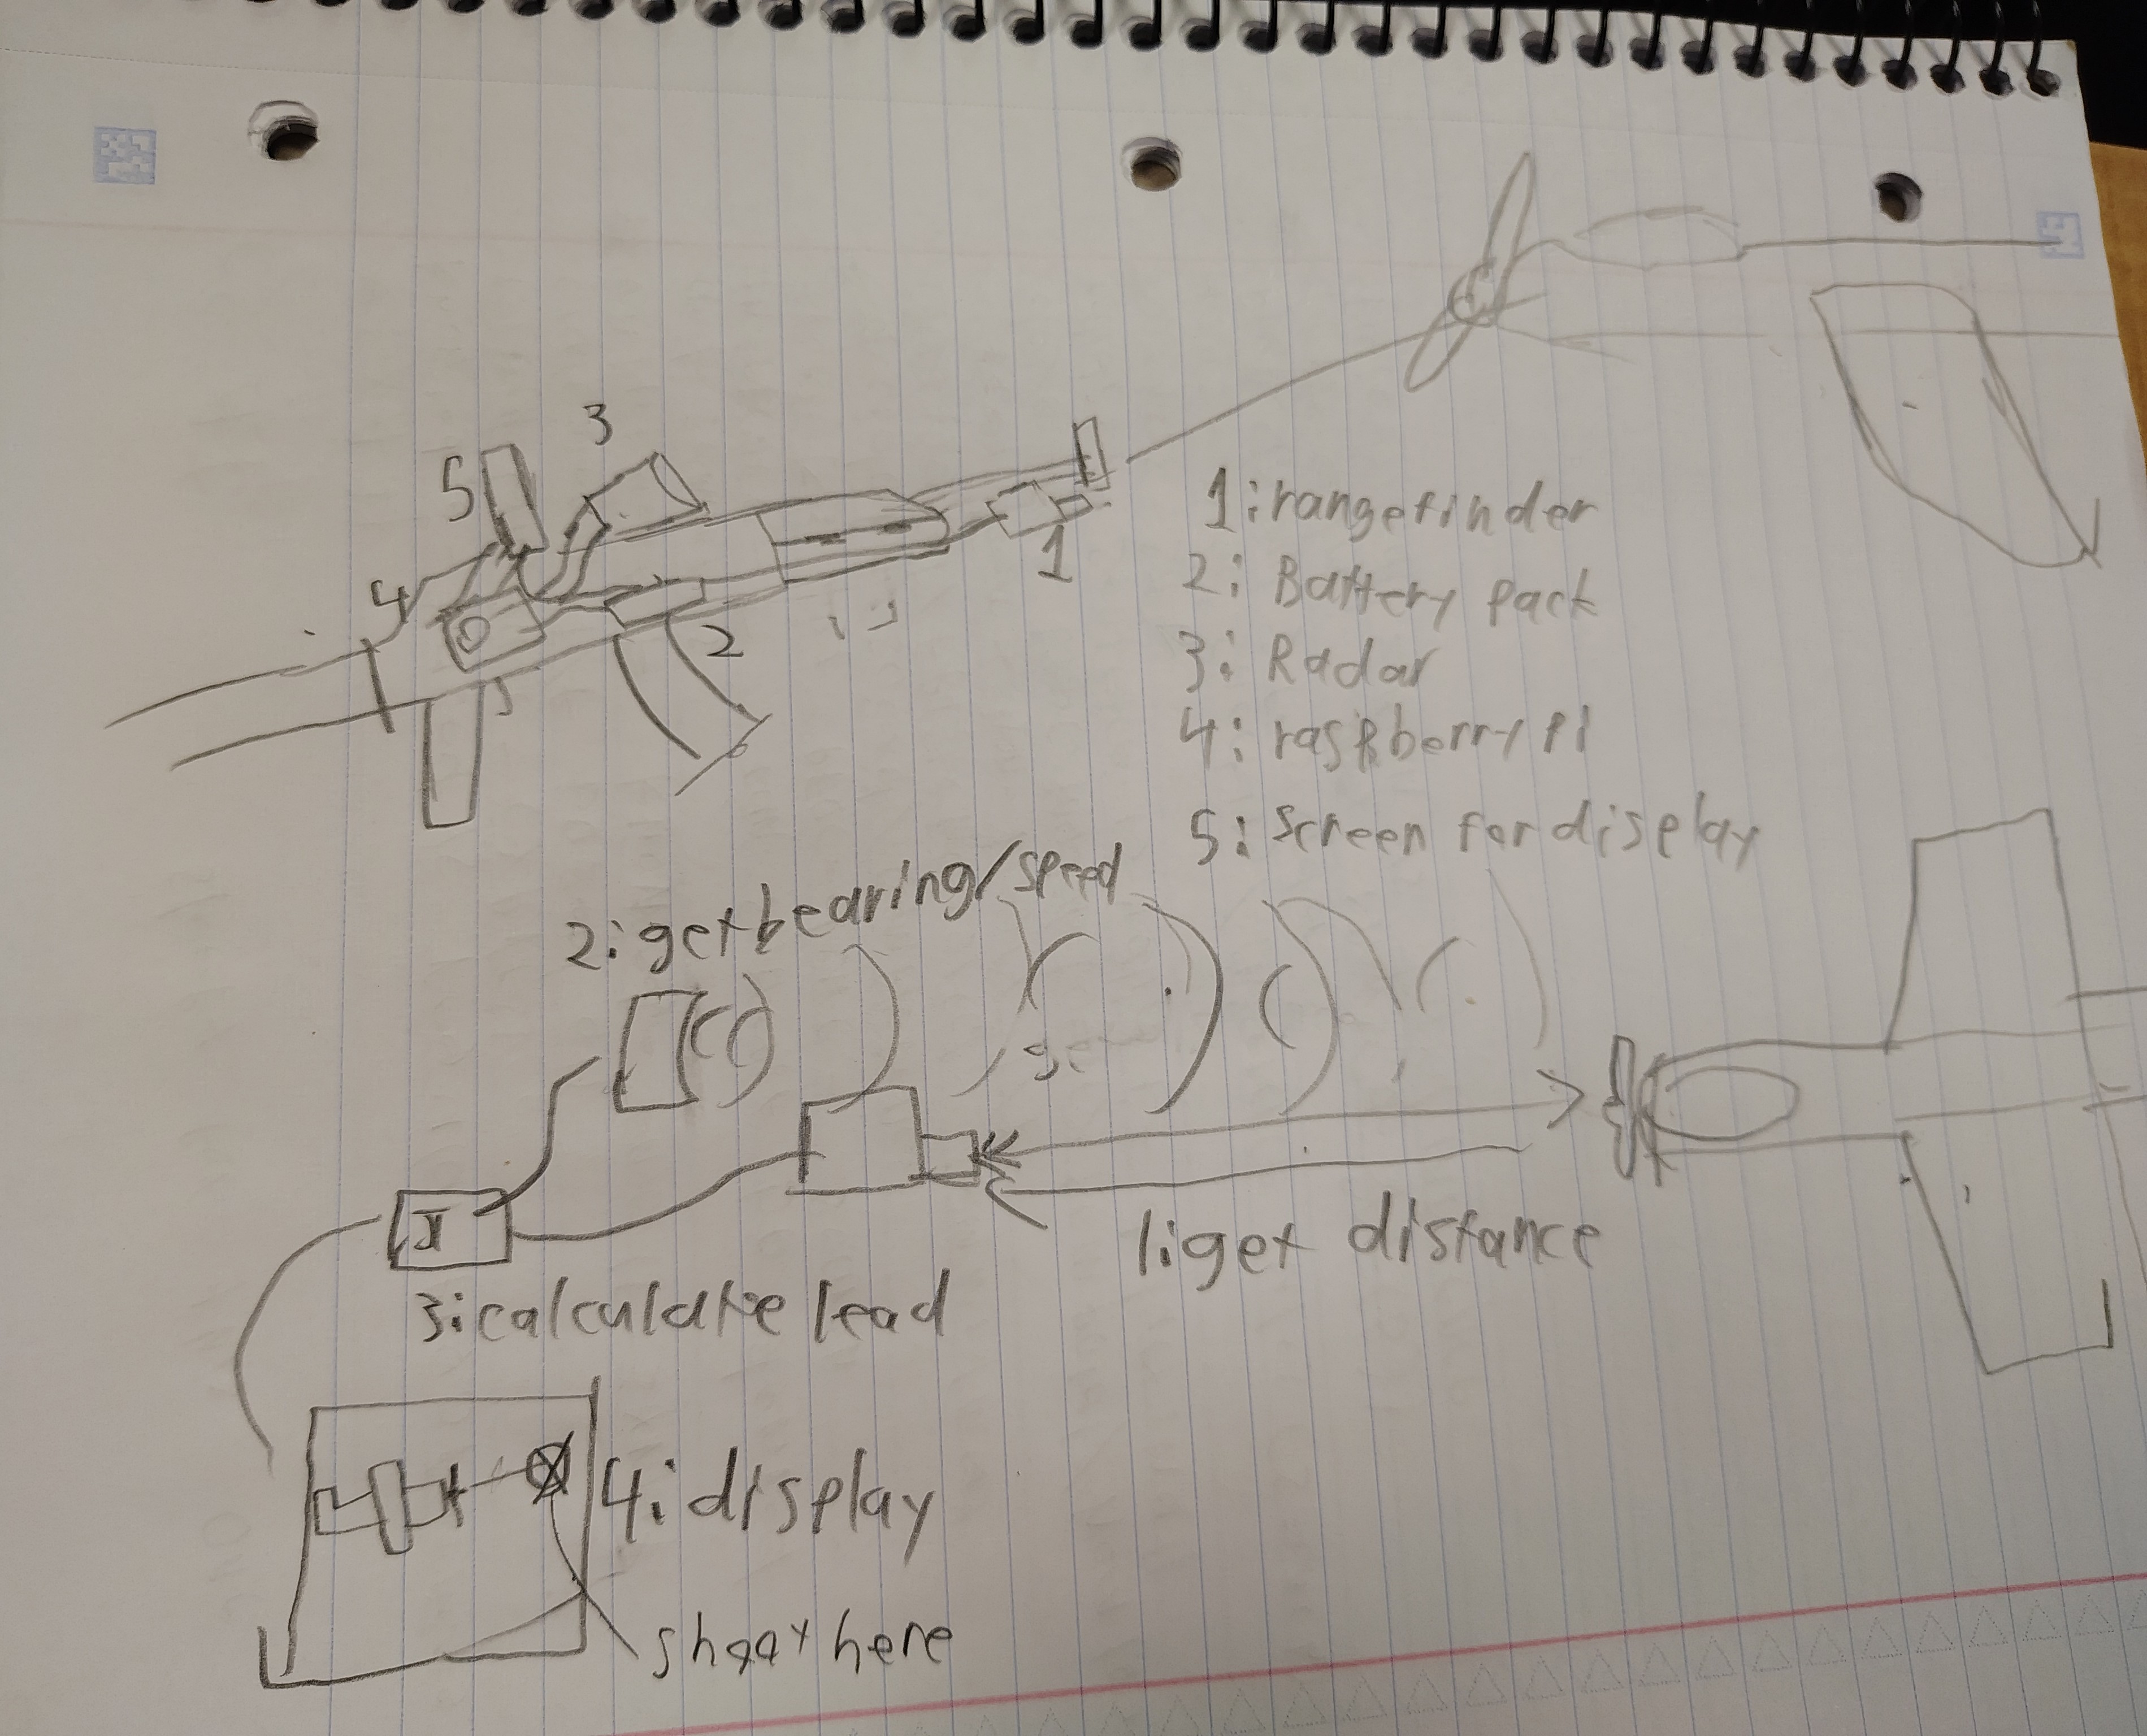 3
5
4
1
2
1: rangefinder
2: Battery pack
3: Radar
4: raspberry pi
5: Screen for display
2: get bearing/speed
1: get distance
3: calculate lead
4: display
shoot here